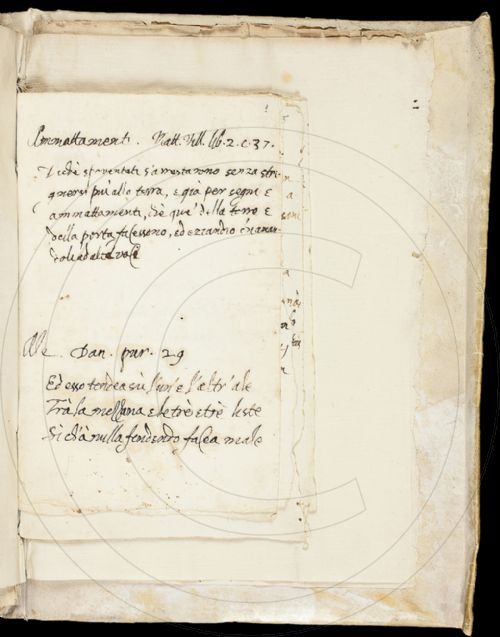 Ammattamenti. Matt. Vill. lib. 2. c. 37.
Di che spaventati s'arrestarono senza stri-
gnersi più alla terra, e già per segni e
ammattamenti, che que' della terra e
della porta facessono, ed eziandio chiaman-
doli ad alta voce
Ale. Dan. pur. 29
Ed esso tendea sù l'un' e l'altr' ale
Trà la mezzana e le trè e trè liste
Sì ch'à nulla fendendo facea male